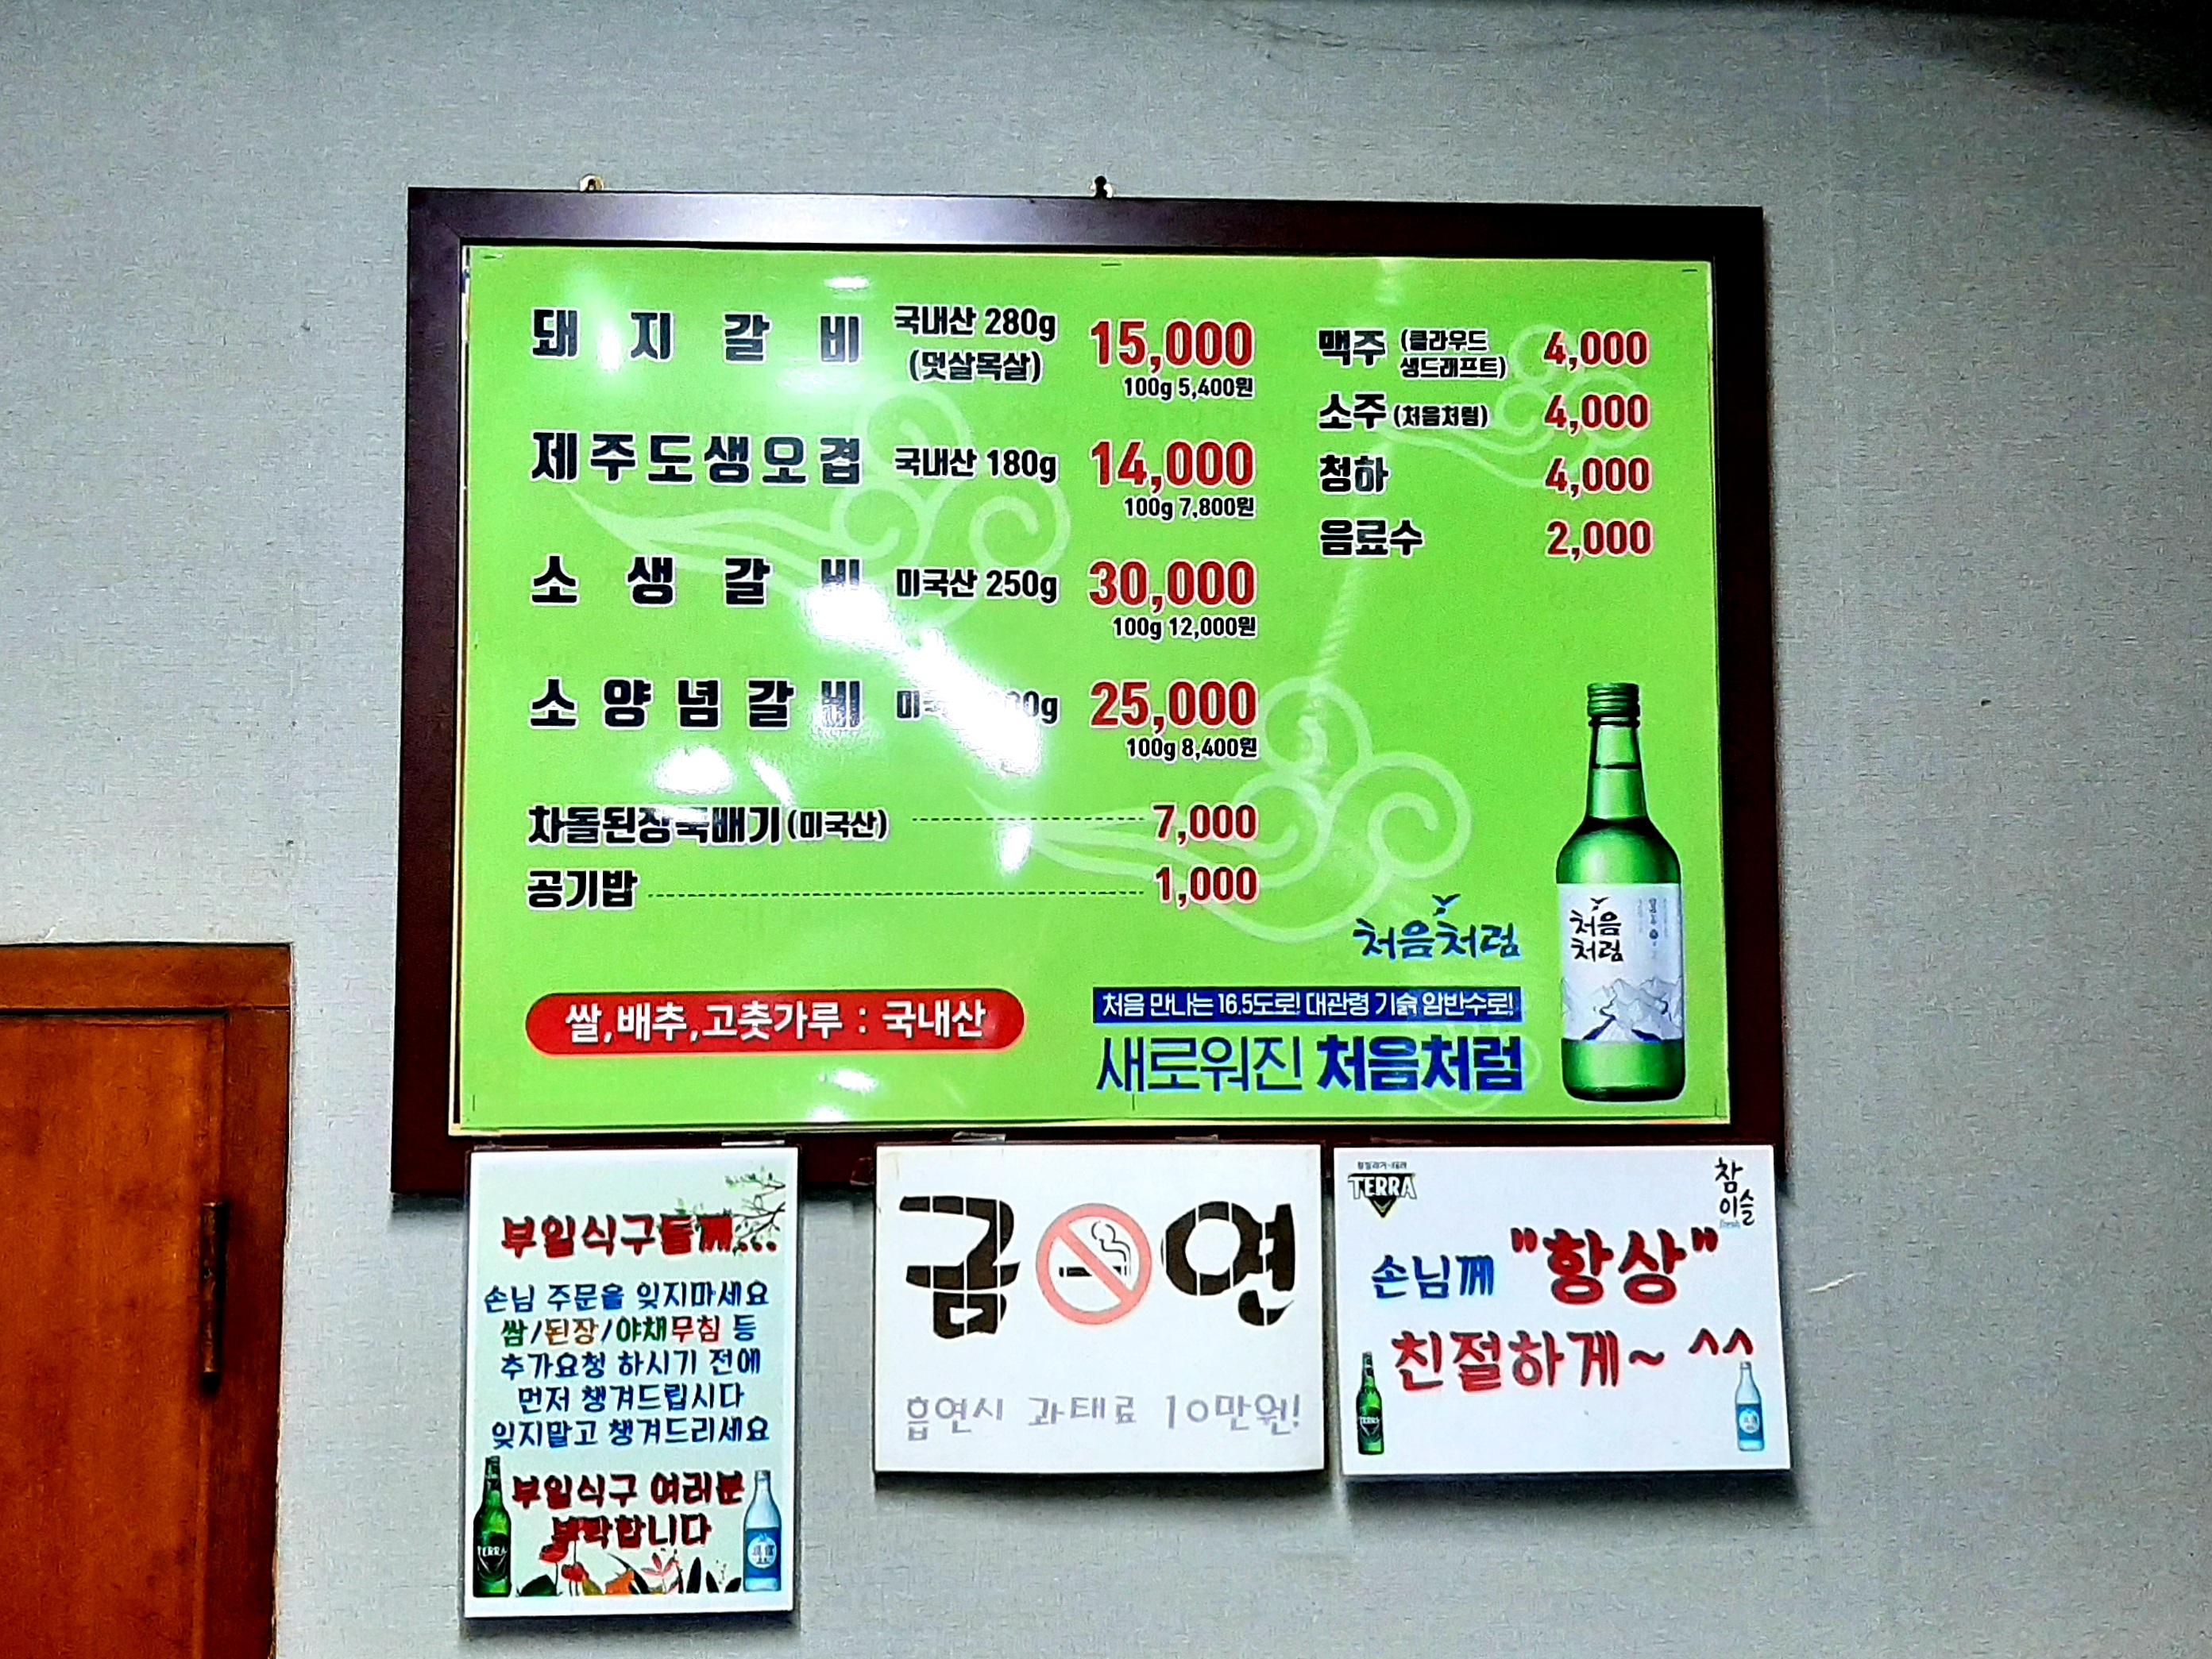 돼지갈비 국내산 280g 15,000
(덧살목살)
100g 5,400원
제주도생오겹 국내산 180g 14,000
100g 7,800원
소생갈비 미국산 250g 30,000
100g 12,000원
소양념갈비 25,000
100g 8,400원
차돌된장뚝배기(미국산) 7,000
공기밥 1,000
쌀,배추,고춧가루 : 국내산
맥주 (클라우드 생드래프트) 4,000
소주(처음처럼) 4,000
청하 4,000
음료수 2,000
처음처럼
처음 만나는 16.5도로! 대관령 기슭 암반수로!
새로워진 처음처럼
처음
처럼
부일식구들께...
손님 주문을 잊지마세요
쌈/된장/야채무침 등
추가요청 하시기 전에
먼저 챙겨드립시다
잊지말고 챙겨드리세요
부일식구 여러분
부탁합니다
TERRA
금연
흡연시 과태료 10만원!
TERRA
참이슬
fresh
손님께 "항상"
친절하게~ ^^
TERRA